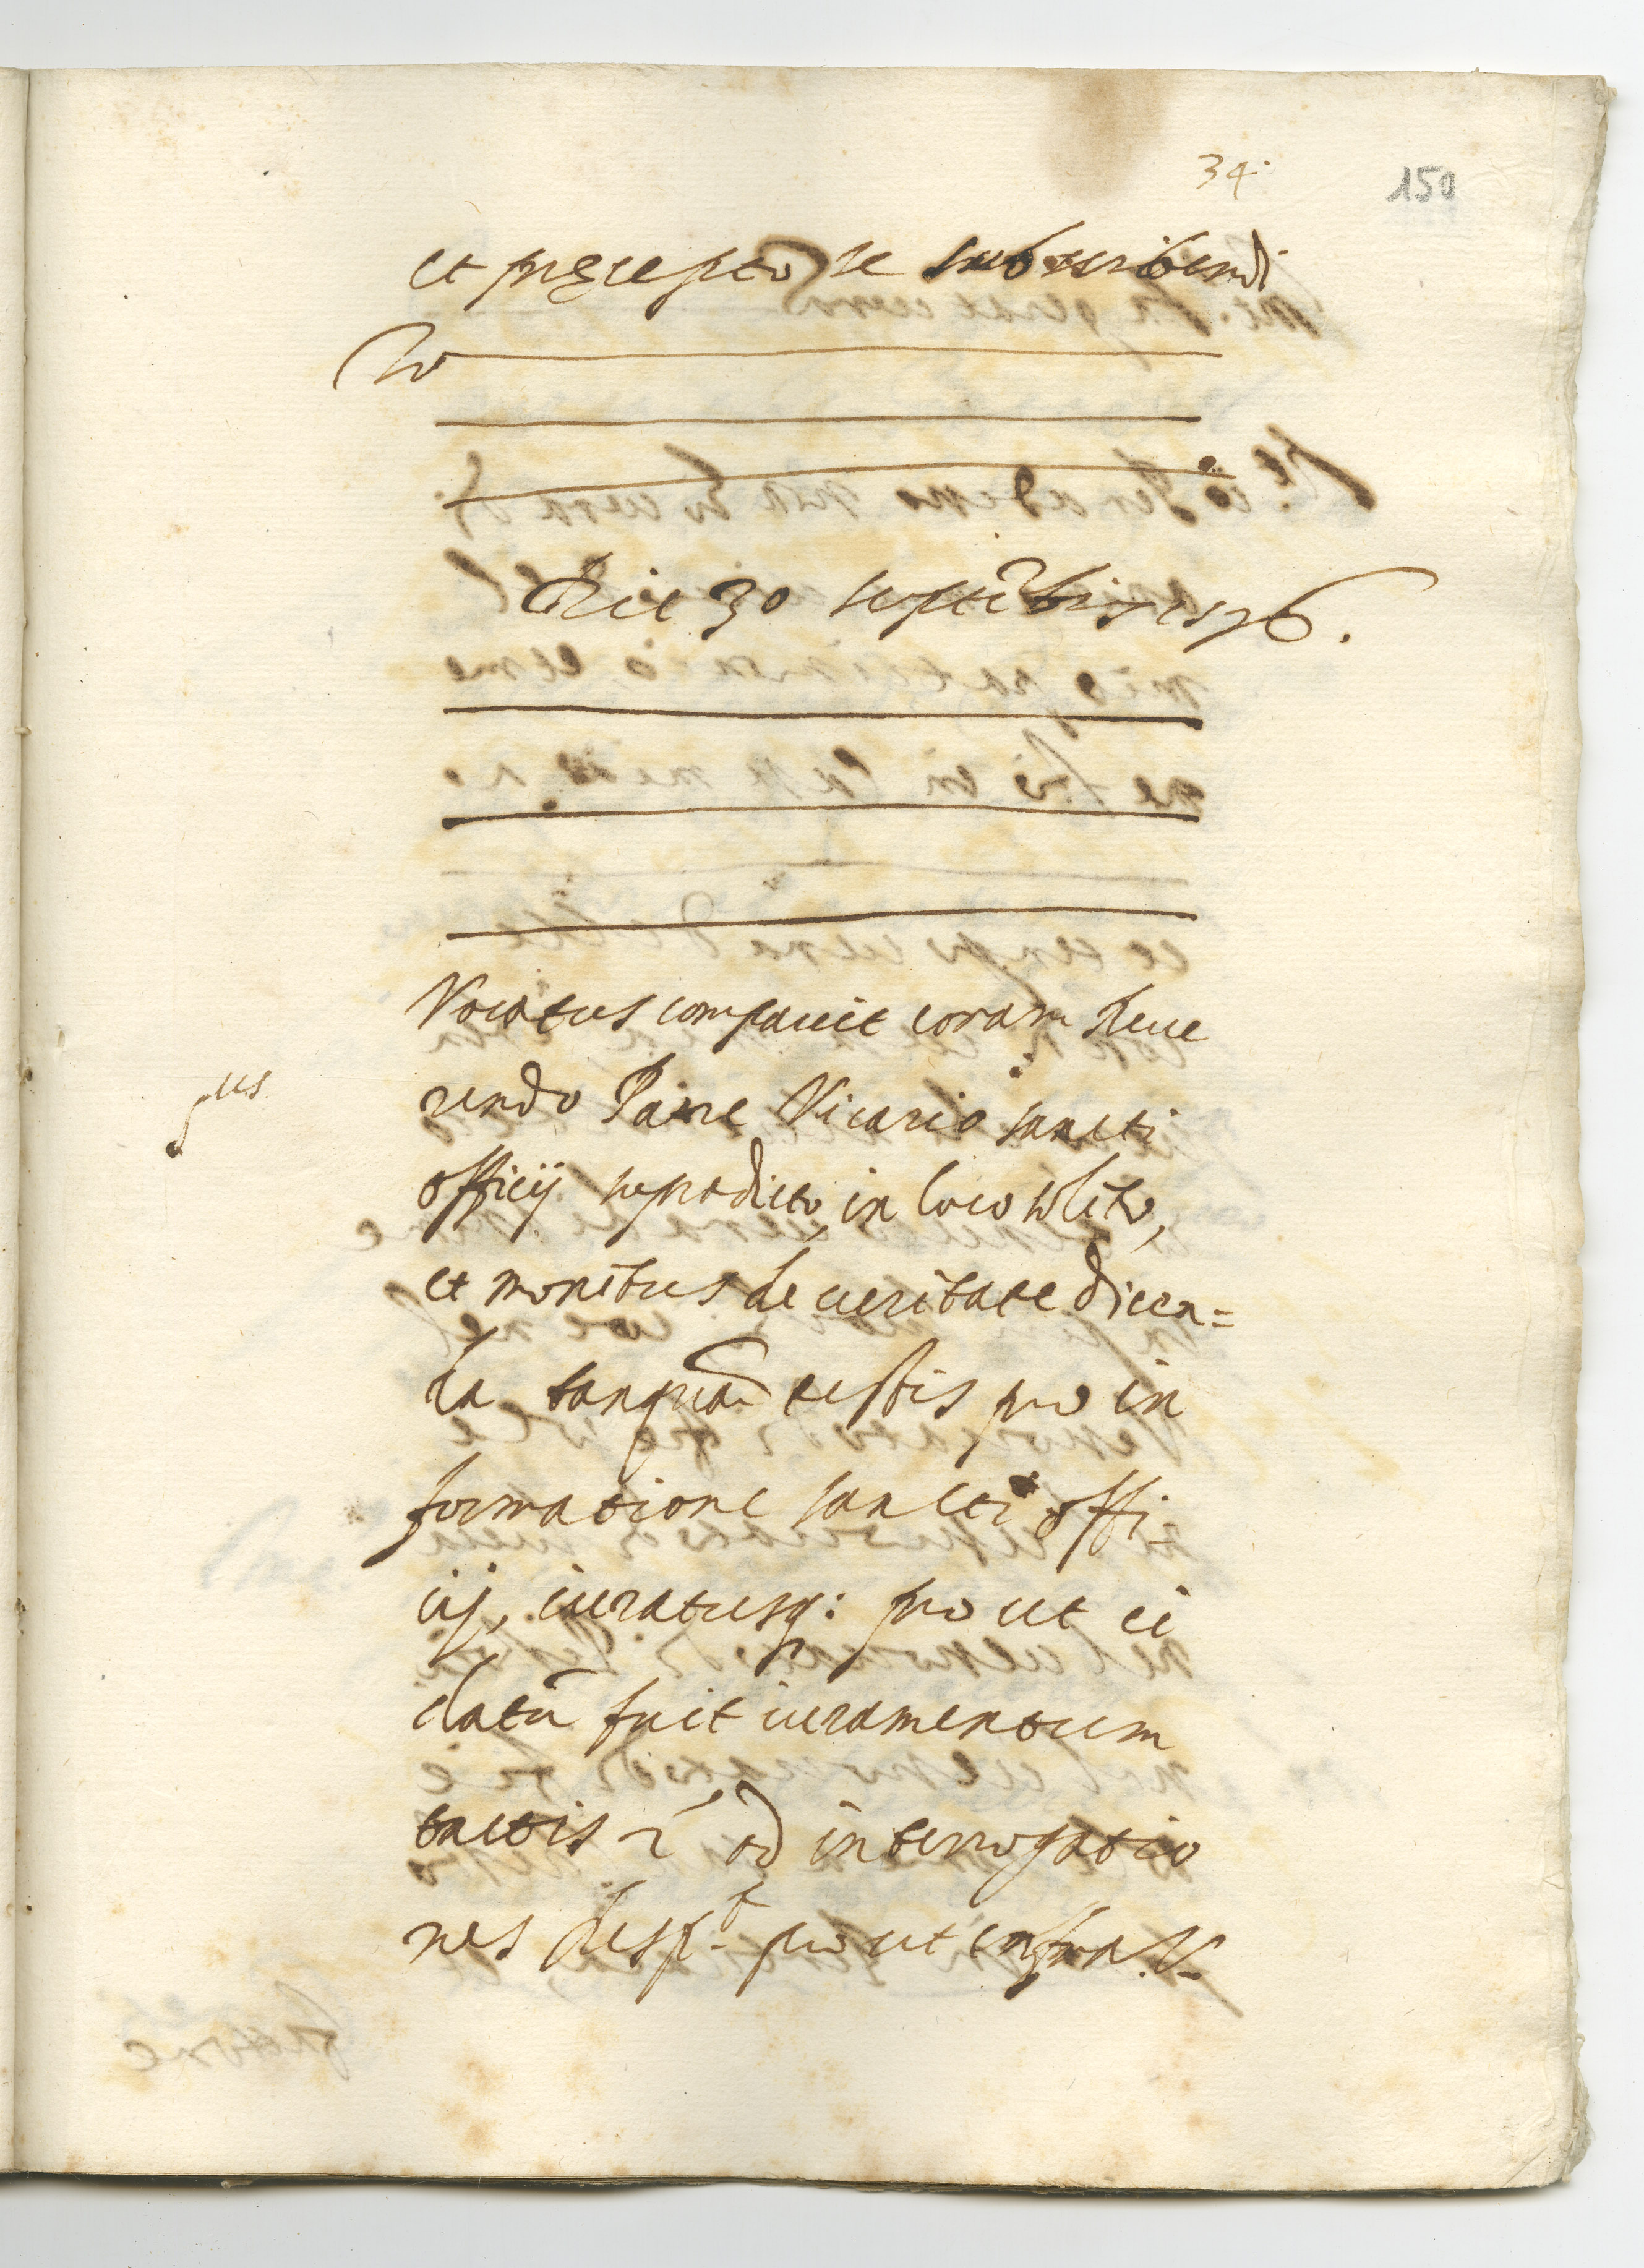 34.
150
et preęcepto se subscribendi
Io
Die 30 septēbris 1576.
Vocatus comparuit coram Reue
rendo Patre Vicario sancti
us
officij supradicto, in loco solito,
et monitus de ueritate dicen=
da tanquā testis pro in
formatione sancti offi-
cij, iuratusq: prout ei
datū fuit iuramentum
tactis ad interrogatio
nes prout infra. V-